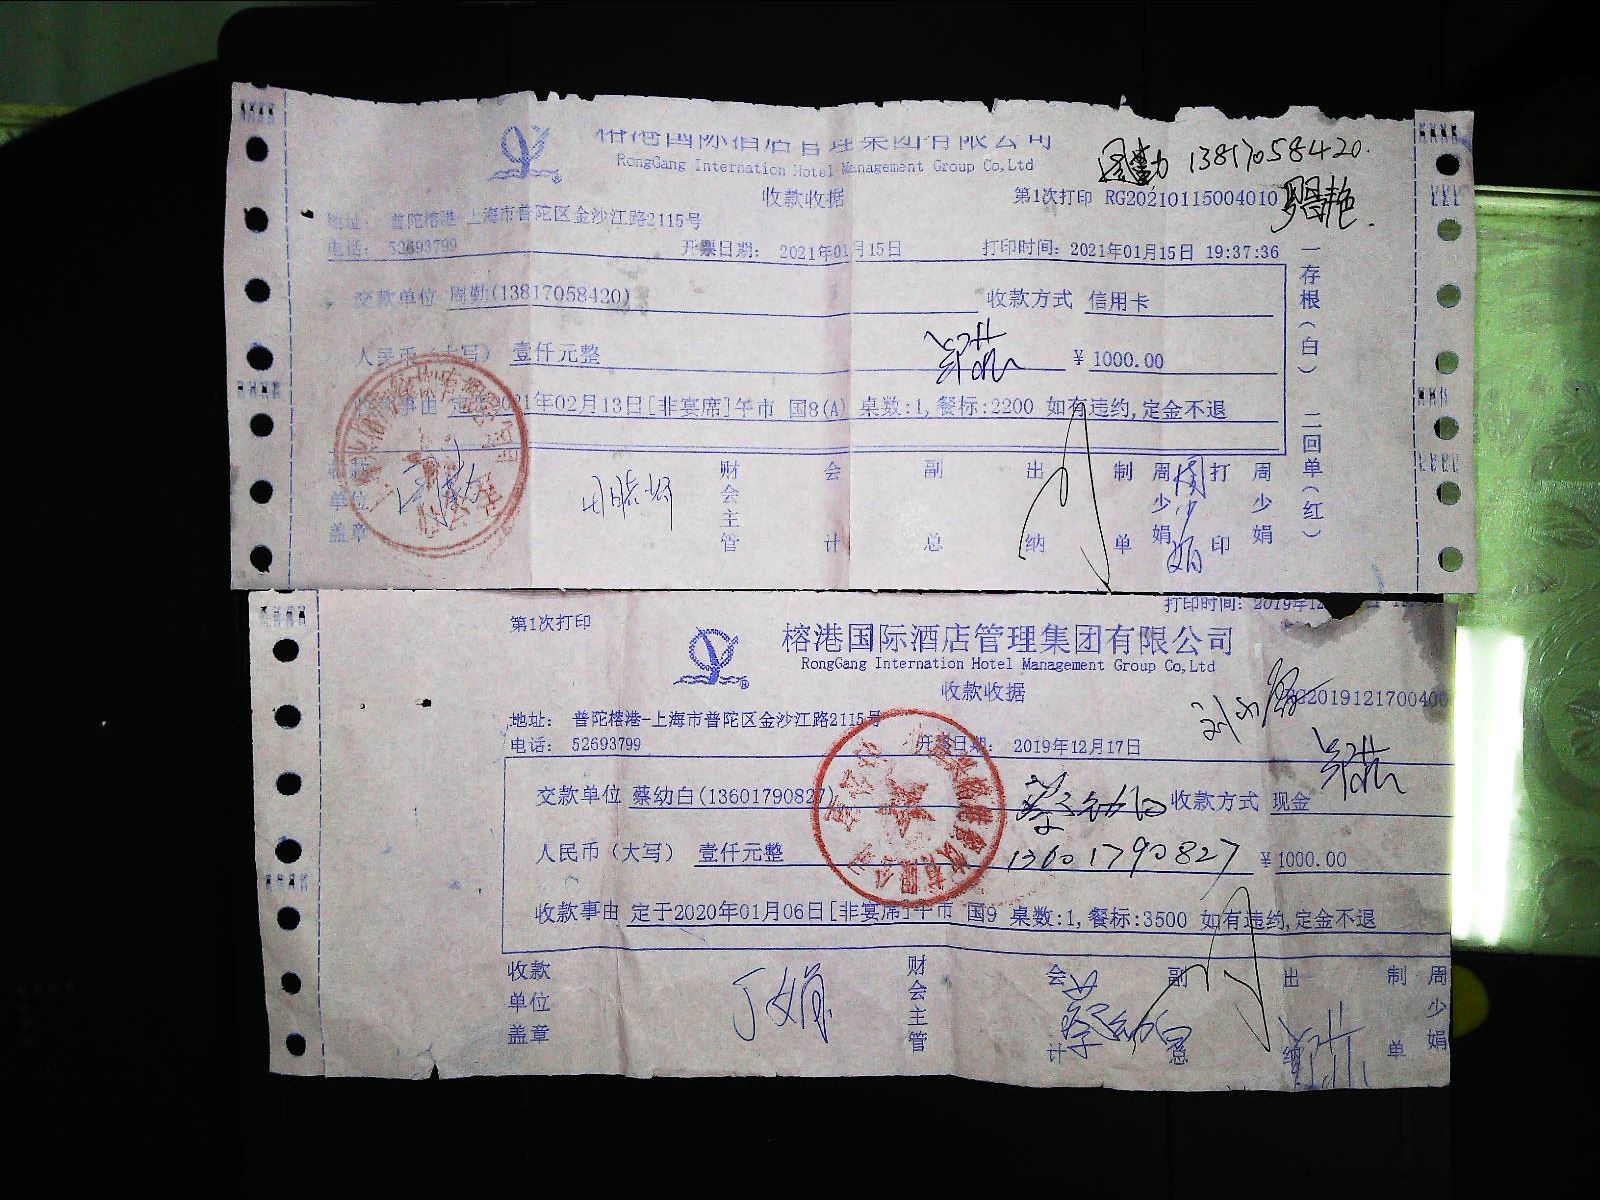 榕港国际酒店管理集团有限公司
RongGang Internation Hotel Management Group Co,Ltd
13817058420
收款收据
第1次打印 RG20210115004010
地址: 普陀榕港-上海市普陀区金沙江路2115号
电话: 52693799
开票日期: 2021年01月15日
打印时间: 2021年01月15日 19:37:36
交款单位 周勤(13817058420)
收款方式 信用卡
人民币(大写) 壹仟元整
¥ 1000.00
事由 定 21年02月13日[非宴席]午市 国8(A) 桌数:1,餐标:2200 如有违约,定金不退
一存根(白) 二回单(红)
收款单位盖章
财会主管
会计
副总
出纳
制单 周少娟
周少娟
打印 周少娟
打印时间: 2019年12
第1次打印
榕港国际酒店管理集团有限公司
RongGang Internation Hotel Management Group Co,Ltd
收款收据
RG2019121700400
地址: 普陀榕港-上海市普陀区金沙江路2115号
电话: 52693799
开票日期: 2019年12月17日
交款单位 蔡幼白(13601790827)
蔡幼白
收款方式 现金
人民币(大写) 壹仟元整
13601790827
¥ 1000.00
收款事由 定于2020年01月06日[非宴席]午市 国9 桌数:1,餐标:3500 如有违约,定金不退
收款单位盖章
丁文娟
财会主管
会计
蔡幼白
副总
出纳
制单 周少娟